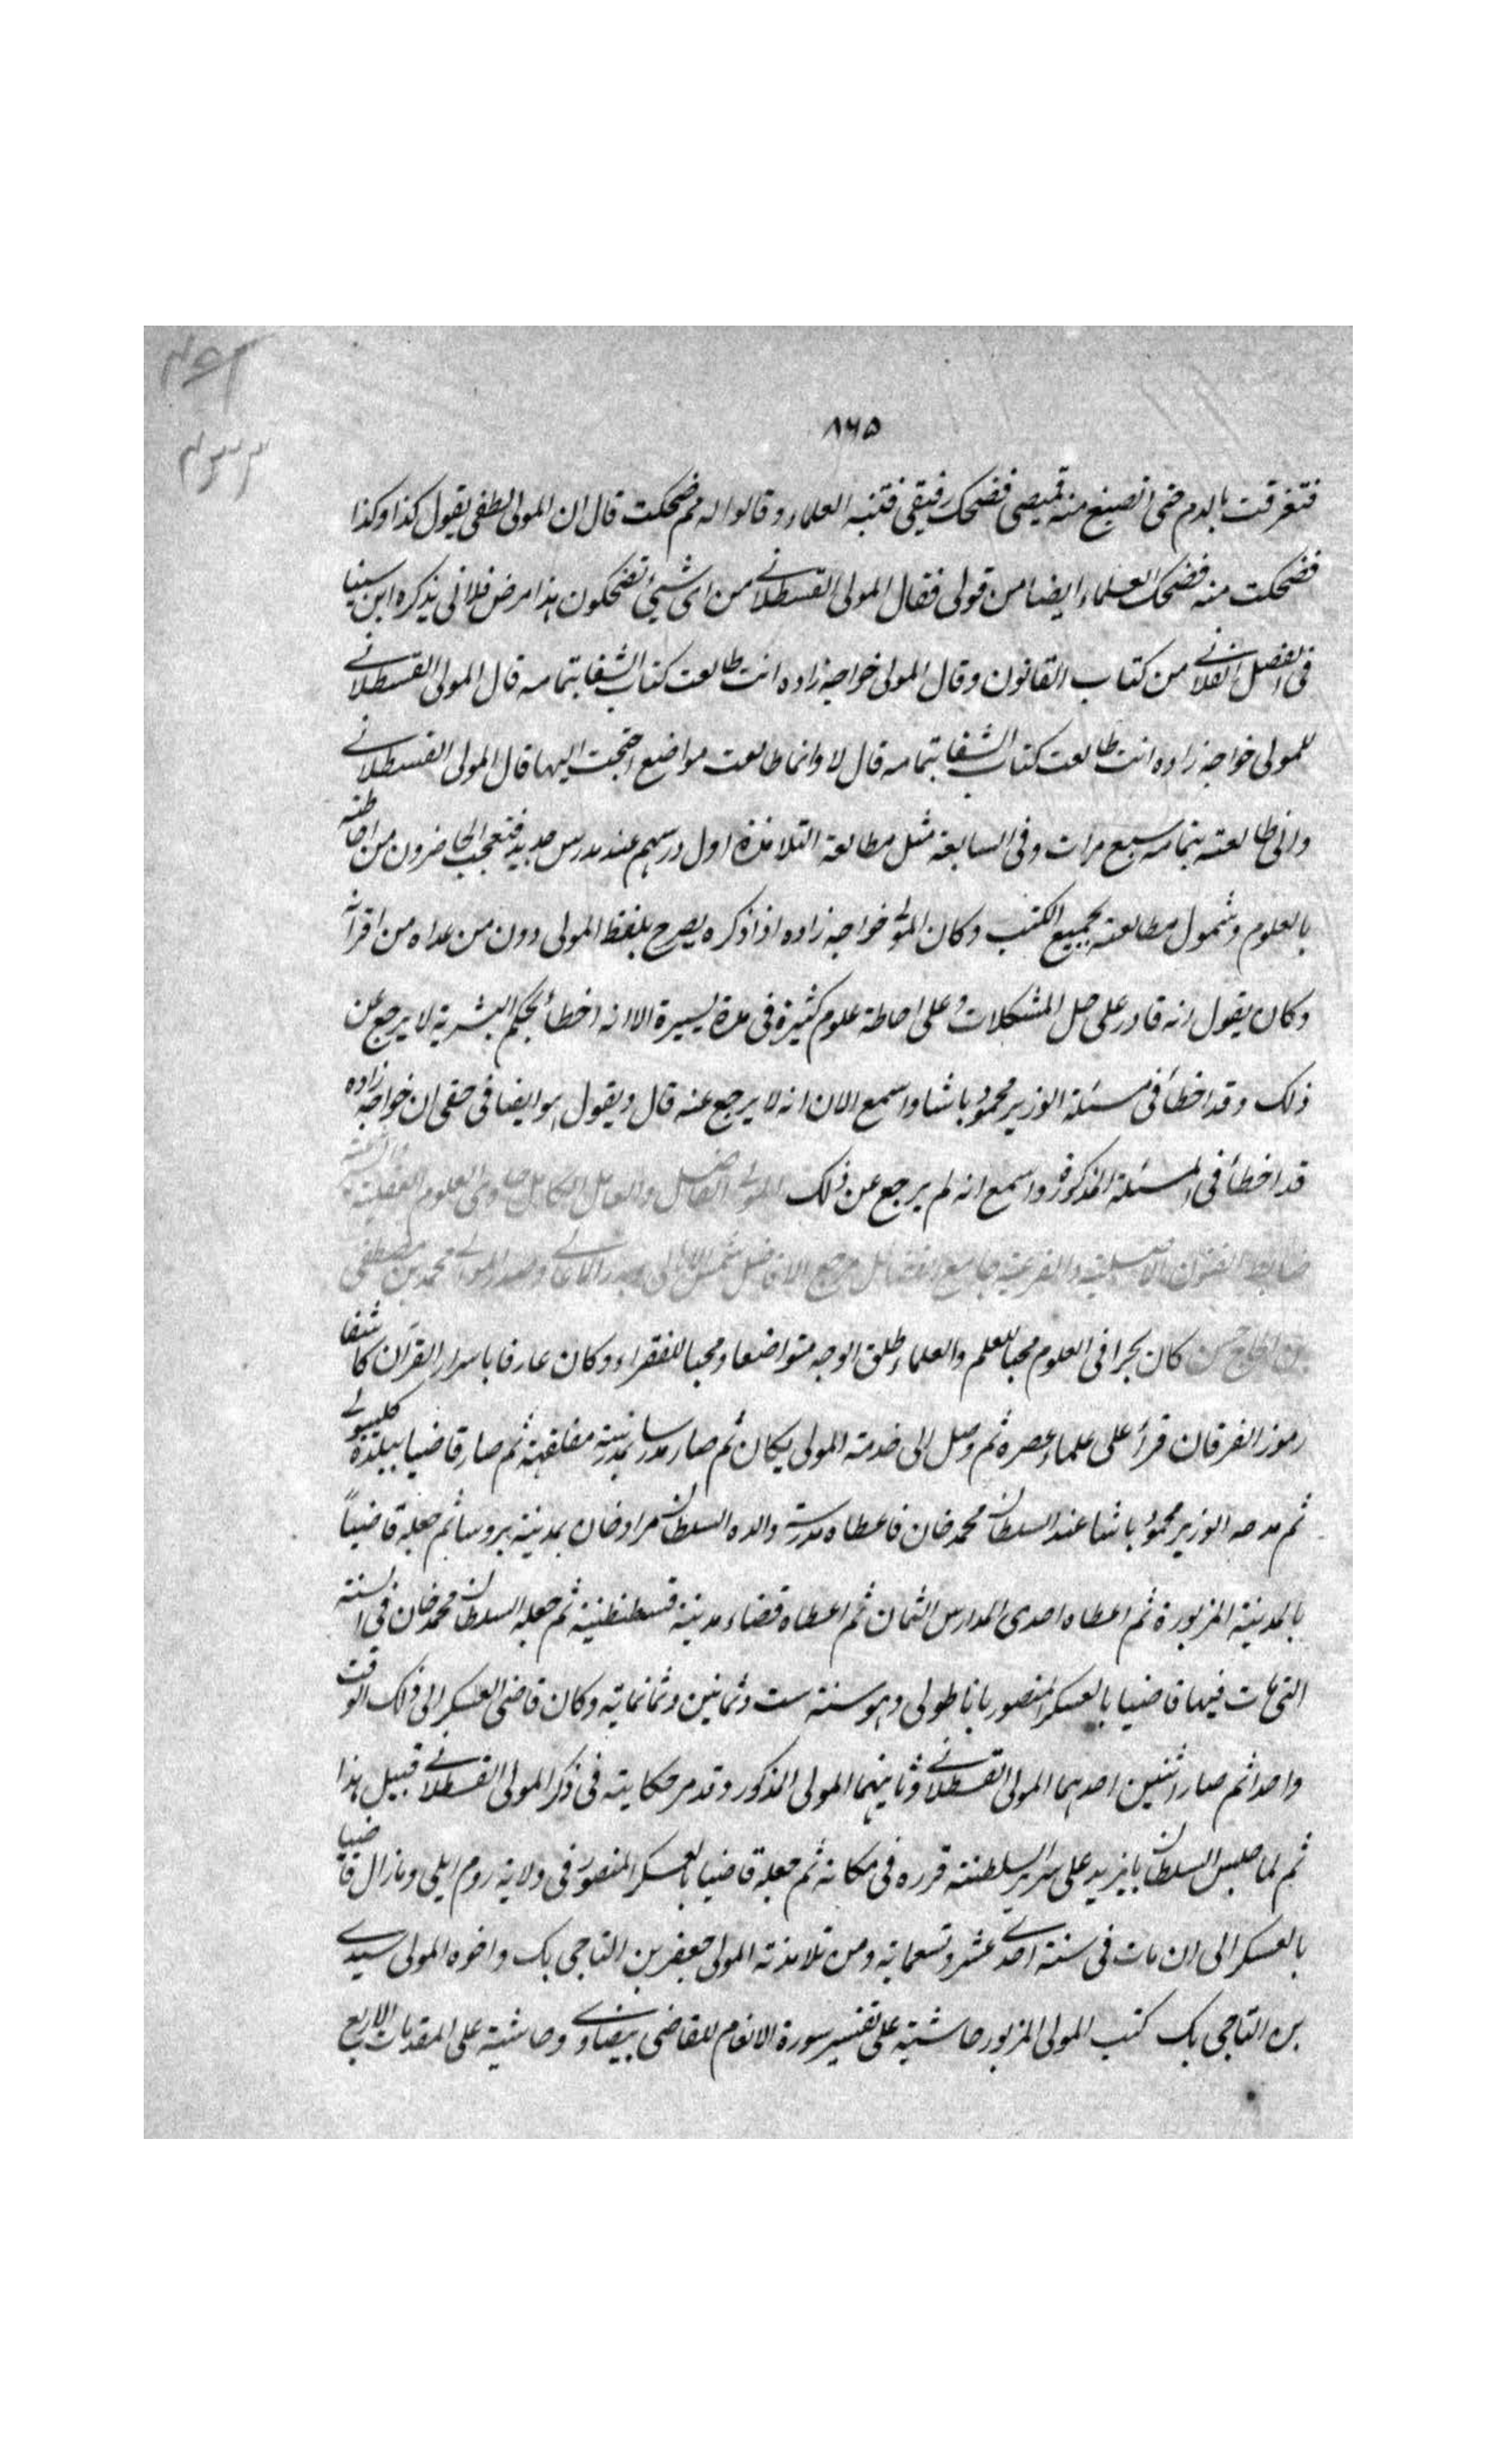 ٨٦٥
فتغرقت بالدم حتى انصبغ منه قميصى فضحك رفيقى فتنبه العلماء وقالوا له مم ضحكت قال ان المولى لطفى يقول كذا وكذا
فضحكت منه فضحك العلماء ايضا من قولى فقال المولى القسطلانى من اى شيئ تضحكون هذا مرض فلانى يذكره ابن سينا
فى الفصل الفلانى من كتاب القانون وقال المولى خواجه زاده انت طالعت كتاب الشفا بتمامه قال المولى القسطلانى
للمولى خواجه زاده انت طالعت كتاب الشفا بتمامه قال لا وانما طالعت مواضع احتجت اليها قال المولى القسطلانى
وانى طالعته بتمامه سبع مرات وفى السابعة مثل مطالعة التلامذة اول درسهم عند مدرس جديد فتعجب الحاضرون من احاطته
بالعلوم وشمول مطالعته بجميع الكتب وكان المولى خواجه زاده اذا ذكره يصرح بلفظ المولى دون من عداه من اقرانه
وكان يقول انه قادر على حل المشكلات وعلى احاطة علوم كثيرة فى مدة يسيرة الا انه اخطأ بحكم البشرية لا يرجع عن
ذلك وقد اخطأ فى مسئلة الوزير محمود باشا واسمع الان انه لا يرجع عنه قال ويقول هو ايضا فى حقى ان خواجه زاده
قد اخطأ فى المسئلة المذكورة واسمع انه لم يرجع عن ذلك المولى الفاضل والعامل الكامل حاوى العلوم العقلية
ضابط الفنون الاصلية والفرعية جامع الفضائل مرجع الافاضل شمس الاهالى بدر الاعالى وصدر الموالى محمد بن مصطفى
بن الحاج حسن كان بحرا فى العلوم محبا للعلم والعلماء طلق الوجه متواضعا ومحبا للفقراء وكان عارفا باسرار القرآن كاشفا
رموز الفرقان قرأ على علماء عصره ثم وصل الى خدمة المولى يكان ثم صار مدرسا بمدينة مغلقهة ثم صار قاضيا ببلدة كليبولى
ثم مدحه الوزير محمود باشا عند السلطان محمد خان فاعطاه مدرسة والده السلطان مراد خان بمدينة بروسا ثم جعله قاضيًا
بالمدينة المزبورة ثم اعطاه احدى المدارس الثمان ثم اعطاه قضاء مدينة قسطنطنية ثم جعله السلطان محمد خان فى السنة
التى مات فيها قاضيا بالعسكر المنصور باناطولى وهو سنة ست وثمانين وثمانماية وكان قاضى العسكر الى ذلك الوقت
واحدا ثم صار اثنين احدهما المولى القسطلانى وثانيهما المولى المذكور وقد مر حكايته فى ذكر المولى القسطلانى قبيل هذا
ثم لما جلس السلطان بايزيد على سرير السلطنة قرره فى مكانه ثم جعله قاضيا بالعسكر المنصور فى ولاية روم ايلى وما زال قاضيا
بالعسكر الى ان مات فى سنة احدى عشر وتسعماية ومن تلامذته المولى جعفر بن التاجى بك واخوه المولى سيدى
بن التاجى بك كتب المولى المزبور حاشية على تفسير سورة الانعام للقاضى بيضاوى وحاشية على المقدمات الاربع